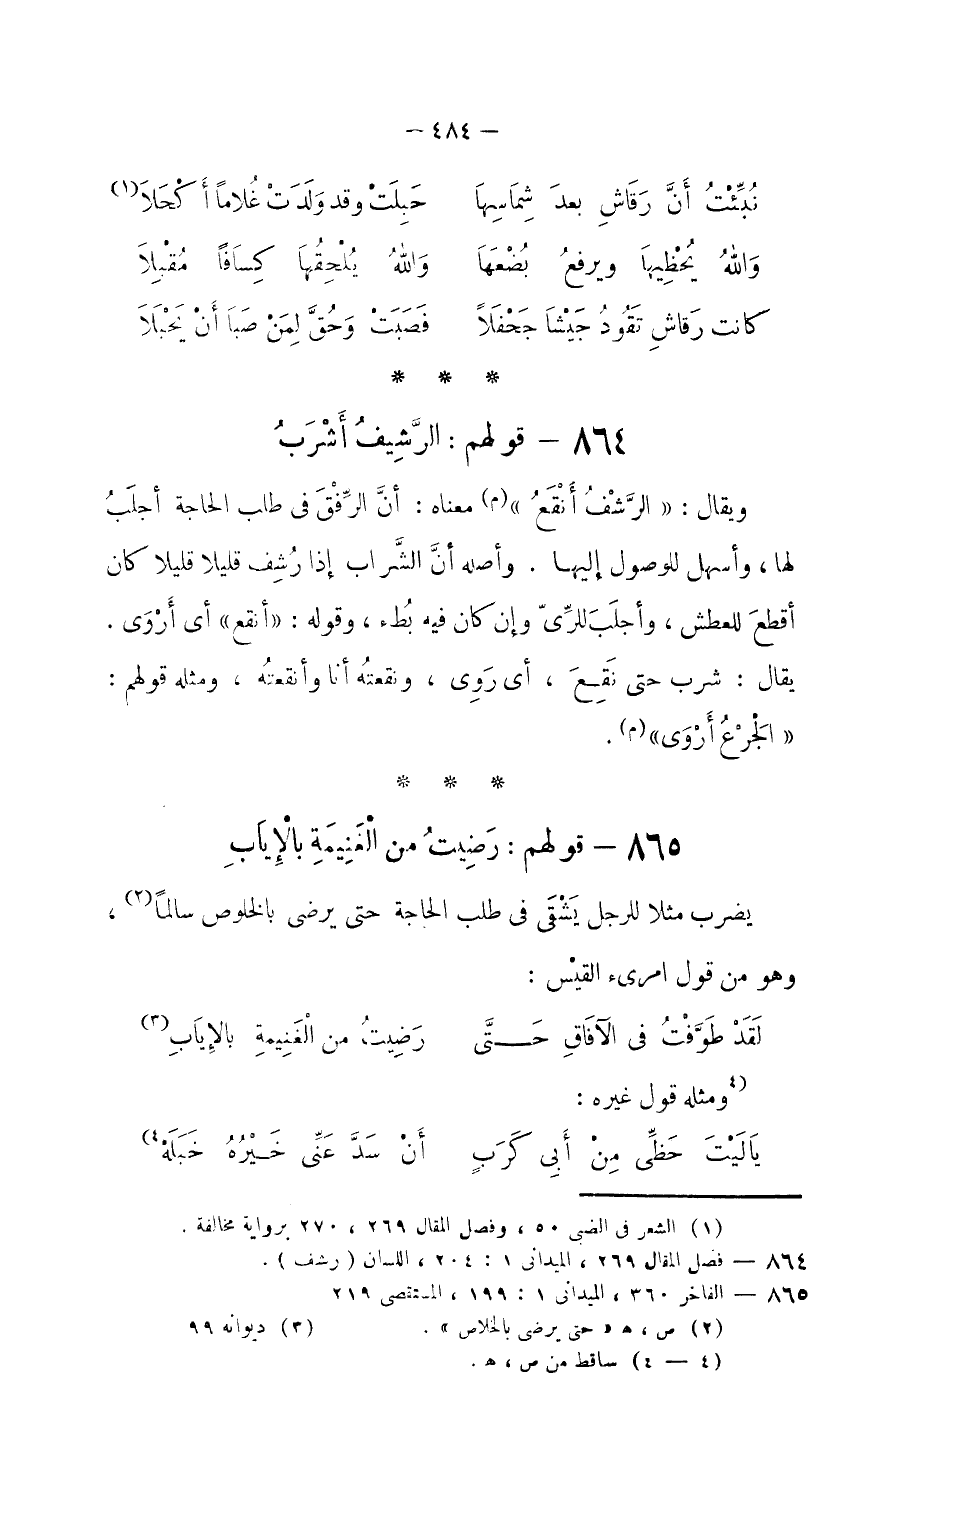 — ٤٨٤ —
نُبِّئْتُ أَنَّ رَقَاشِ بعدَ شِمَاسِهَا حَبِلَتْ وقد وَلَدَتْ غُلاماً أَكْحَلاَ(١)
وَاللهُ يُحْظِيهَا ويرفعُ بُضْعَهَا وَاللهُ يُلْحِقُهَا كِسَافًا مُقْبِلاَ
كانت رَقاشِ تَقُودُ جَيْشًا جَحْفَلاً فَصَبَتْ وَحُقَّ لِمَنْ صَبَا أَنْ يَحْبَلاَ
* * *
٨٦٤ — قولهم : الرَّشِيفُ أَشْرَبُ
ويقال : « الرَّشْفُ أَنْقَعُ »(م) معناه : أنَّ الرِّفْقَ فى طلب الحاجة أجلَبُ
لها ، وأسهل للوصول إليها . وأصله أنَّ الشَّراب إذا رُشِف قليلا قليلا كان
أقطعَ للعطش ، وأجلَبَ للرِّىّ وإن كان فيه بُطء ، وقوله : «أنقع» أى أَرْوَى .
يقال : شرب حتى نَقَِعَ ، أى رَوِى ، ونقعتُه أنا وأنقعتُه ، ومثله قولهم :
« الجَرْعُ أَرْوَى»(م) .
* * *
٨٦٥ — قولهم : رَضِيتُ من الْغَنِيمَةِ بالْإِيَابِ
يضرب مثلا للرجل يَشْقَى فى طلب الحاجة حتى يرضى بالخلوص سالماً(٢) ،
وهو من قول امرىء القيْس :
لَقَدْ طَوَّفْتُ فى الآفَاقِ حَـــتَّى رَضِيتُ من الْغَنِيمةِ بالإِيَابِ(٣)
(٤ومثله قول غيره :
يَالَيْتَ حَظِّى مِنْ أَبِى كَرَبٍ أَنْ سَدَّ عَنِّى خَيْرُهُ خَبَلَهْ٤)
(١) الشعر فى الضبى ٥٠ ، وفصل المقال ٢٦٩ ، ٢٧٠ برواية مخالفة .
٨٦٤ — فصل المقال ٢٦٩ ، الميدانى ١ : ٢٠٤ ، اللسان ( رشف ) .
٨٦٥ — الفاخر ٣٦٠ ، الميدانى ١ : ١٩٩ ، المستقصى ٢١٩
(٢) ص ، ه « حتى يرضى بالخلاص » . (٣) ديوانه ٩٩
(٤ — ٤) ساقط من ص ، ه .